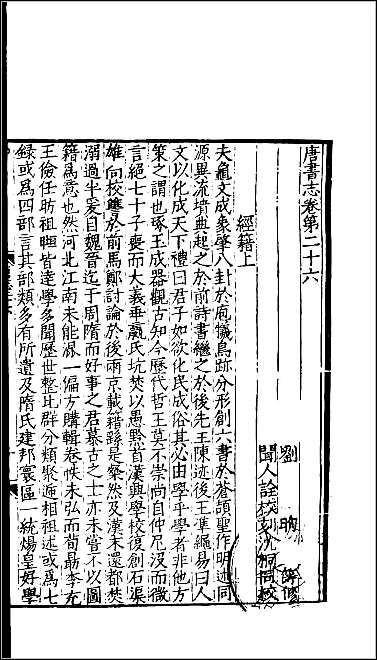 唐書志卷第二十六
劉昫 等修
聞人詮校刻沈桐同校
經籍上
夫龜文成象肇八卦於庖犧鳥跡分形創六書於蒼頡聖作明述同
源異流墳典起之於前詩書繼之於後先王陳迹後王準繩易曰人
文以化成天下禮曰君子如欲化民成俗其必由學乎學者非他方
策之謂也琢玉成器觀古知今歷代哲王莫不崇尚自仲尼沒而微
言絕七十子喪而大義乖嬴氏坑焚以愚黔首漢興學校復創石渠
雄向校讐於前馬鄭討論於後兩京載籍繇是粲然及漢末還都焚
溺過半爰自魏晉迄于周隋而好事之君慕古之士亦未嘗不以圖
籍爲意也然河北江南未能混一偏方購輯卷帙未弘而荀勗李充
王儉任昉祖暅皆達學多聞歷世整比群分類聚遞相祖述或爲七
録或爲四部言其部類多有所遺及隋氏建邦寰區一統煬皇好學